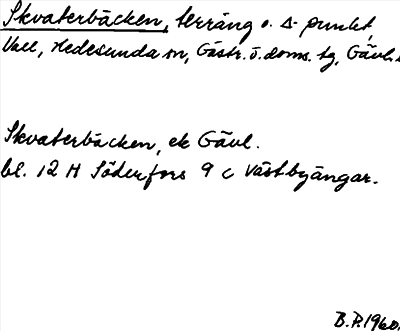 Skvaterbäcken, terräng o. Δ-punkt,
Hedesunda sn, Gästr. ö. doms. tg, Gävl.
Skvaterbäcken, ek Gävl.
bl. 12 H Söderfors 9 c Västbyängar.
B.P. 1960.